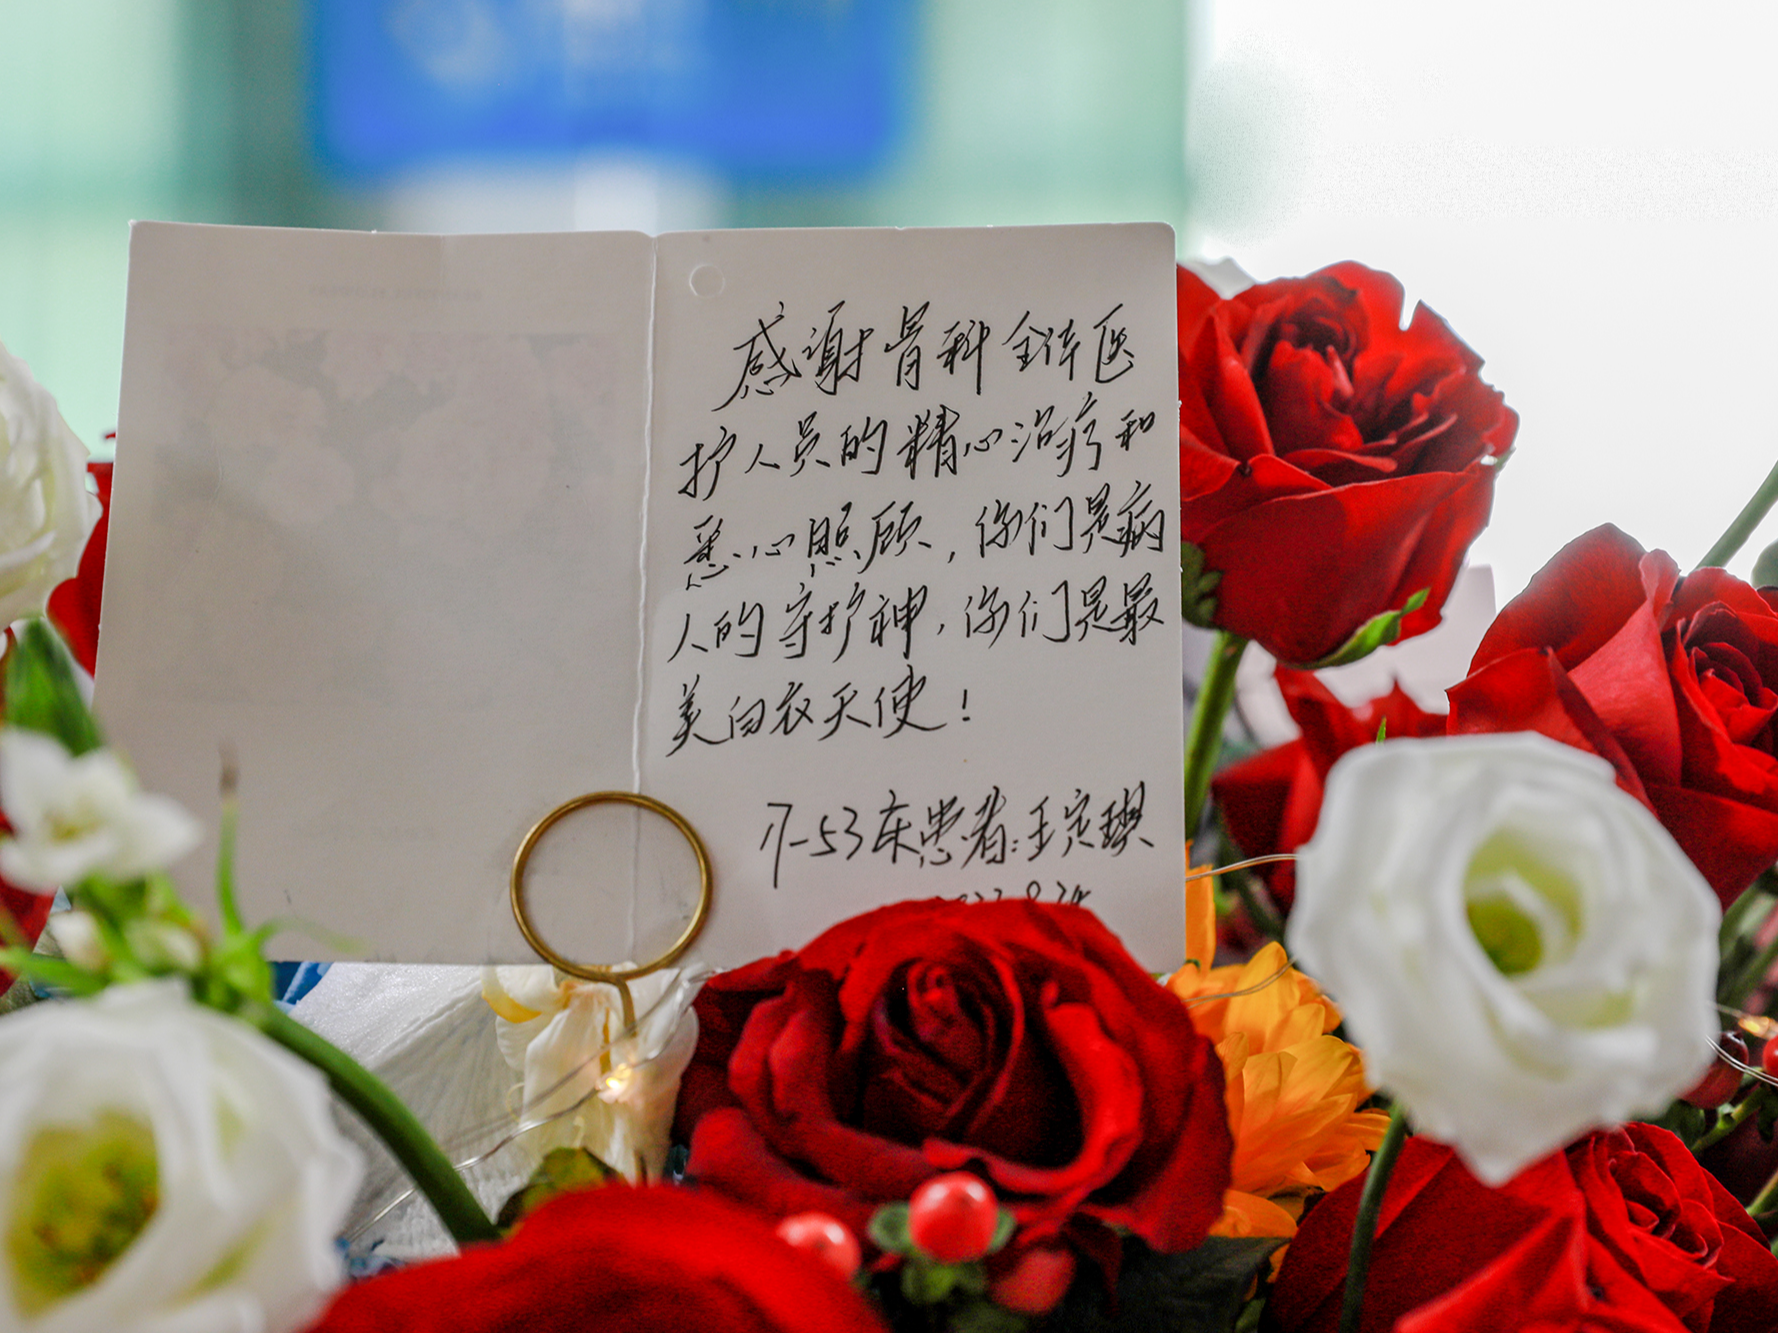 感谢骨科全体医
护人员的精心治疗和
悉心照顾，你们是病
人的守护神，你们是最
美白衣天使！
17-53床患者:王宗